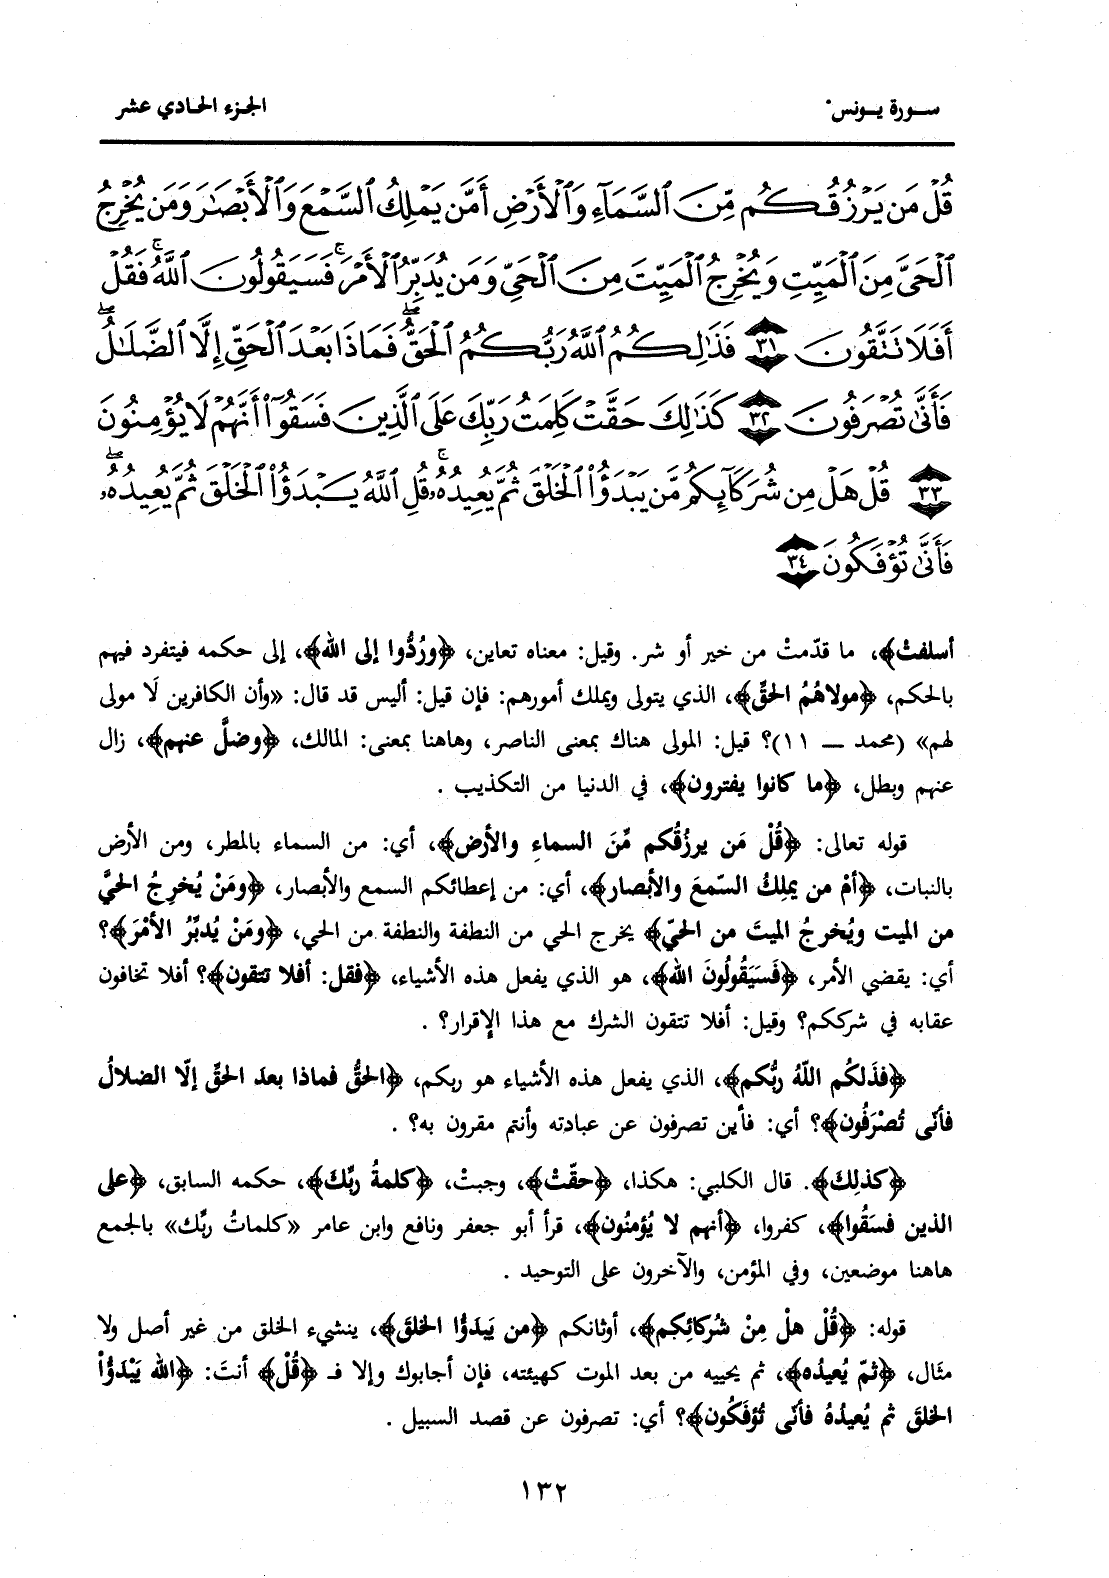 سورة يونس
الجزء الحادي عشر
قُلْ مَن يَرْزُقُكُم مِّنَ ٱلسَّمَآءِ وَٱلْأَرْضِ أَمَّن يَمْلِكُ ٱلسَّمْعَ وَٱلْأَبْصَٰرَ وَمَن يُخْرِجُ
ٱلْحَىَّ مِنَ ٱلْمَيِّتِ وَيُخْرِجُ ٱلْمَيِّتَ مِنَ ٱلْحَىِّ وَمَن يُدَبِّرُ ٱلْأَمْرَ ۚ فَسَيَقُولُونَ ٱللَّهُ ۚ فَقُلْ
أَفَلَا تَتَّقُونَ ٣١ فَذَٰلِكُمُ ٱللَّهُ رَبُّكُمُ ٱلْحَقُّ ۖ فَمَاذَا بَعْدَ ٱلْحَقِّ إِلَّا ٱلضَّلَٰلُ ۖ
فَأَنَّىٰ تُصْرَفُونَ ٣٢ كَذَٰلِكَ حَقَّتْ كَلِمَتُ رَبِّكَ عَلَى ٱلَّذِينَ فَسَقُوٓا۟ أَنَّهُمْ لَا يُؤْمِنُونَ
٣٣ قُلْ هَلْ مِن شُرَكَآئِكُم مَّن يَبْدَؤُا۟ ٱلْخَلْقَ ثُمَّ يُعِيدُهُۥ ۚ قُلِ ٱللَّهُ يَبْدَؤُا۟ ٱلْخَلْقَ ثُمَّ يُعِيدُهُۥ ۖ
فَأَنَّىٰ تُؤْفَكُونَ ٣٤
أسلفتْ﴾، ما قدّمتْ من خير أو شر. وقيل: معناه تعاين، ﴿ورُدُّوا إلى الله﴾، إلى حكمه فيتفرد فيهم
بالحكم، ﴿مولاهُمُ الحقِّ﴾، الذي يتولى ويملك أمورهم: فإن قيل: أليس قد قال: «وأن الكافرين لَا مولى
لهم» (محمد ــ ١١)؟ قيل: المولى هناك بمعنى الناصر، وهاهنا بمعنى: المالك، ﴿وضلَّ عنهم﴾، زال
عنهم وبطل، ﴿ما كانوا يفترون﴾، في الدنيا من التكذيب .
قوله تعالى: ﴿قُلْ مَن يرزُقُكم مِّنَ السماءِ والأرض﴾، أي: من السماء بالمطر، ومن الأرض
بالنبات، ﴿أمْ من يملِكُ السّمعَ والأبصار﴾، أي: من إعطائكم السمع والأبصار، ﴿ومَنْ يُخرِجُ الحيَّ
من الميت ويُخرجُ الميتَ من الحيّ﴾ يخرج الحي من النطفة والنطفة من الحي، ﴿ومَنْ يُدبِّرُ الأمْرَ﴾؟
أي: يقضي الأمر، ﴿فَسَيَقُولُونَ الله﴾، هو الذي يفعل هذه الأشياء، ﴿فقل: أفلا تتقون﴾؟ أفلا تخافون
عقابه في شرككم؟ وقيل: أفلا تتقون الشرك مع هذا الإقرار؟ .
﴿فذَلكُم اللّهُ ربُّكم﴾، الذي يفعل هذه الأشياء هو ربكم، ﴿الحقُّ فماذا بعدَ الحقِّ إلّا الضلالُ
فأنّى تُصْرَفُون﴾؟ أي: فأين تصرفون عن عبادته وأنتم مقرون به؟ .
﴿كذلِكَ﴾. قال الكلبي: هكذا، ﴿حقّتْ﴾، وجبتْ، ﴿كلمةُ ربِّكَ﴾، حكمه السابق، ﴿على
الذين فسَقُوا﴾، كفروا، ﴿أنهم لا يُؤمنُون﴾، قرأ أبو جعفر ونافع وابن عامر «كلماتُ ربِّك» بالجمع
هاهنا موضعين، وفي المؤمن، والآخرون على التوحيد .
قوله: ﴿قُلْ هلْ مِنْ شُركائِكم﴾، أوثانكم ﴿من يَبدَؤُا الخلقَ﴾، ينشيء الخلق من غير أصل ولا
مثَال، ﴿ثمّ يُعيدُه﴾، ثم يحييه من بعد الموت كهيئته، فإن أجابوك وإلا فـ ﴿قُلْ﴾ أنتَ: ﴿الله يَبْدَؤُاْ
الخلقَ ثم يُعيدُهُ فأنّى تُؤفَكُون﴾؟ أي: تصرفون عن قصد السبيل .
١٣٢